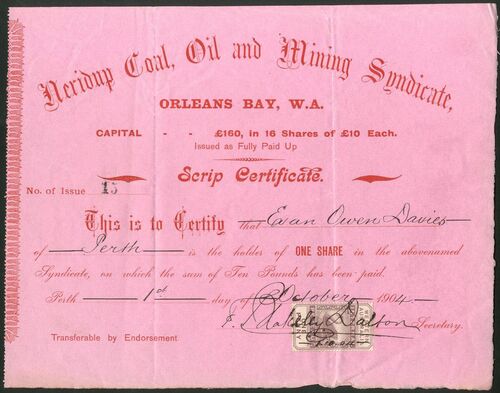 Neridup Coal, Oil and Mining Syndicate,
ORLEANS BAY, W.A.
CAPITAL - - £160, in 16 Shares of £10 Each.
Issued as Fully Paid Up
Scrip Certificate.
No. of Issue 15
This is to Certify that Evan Owen Davies
of Perth is the holder of ONE SHARE in the abovenamed
Syndicate, on which the sum of Ten Pounds has been paid.
Perth 1st day of October 1904.
Dalton Secretary.
Transferable by Endorsement.